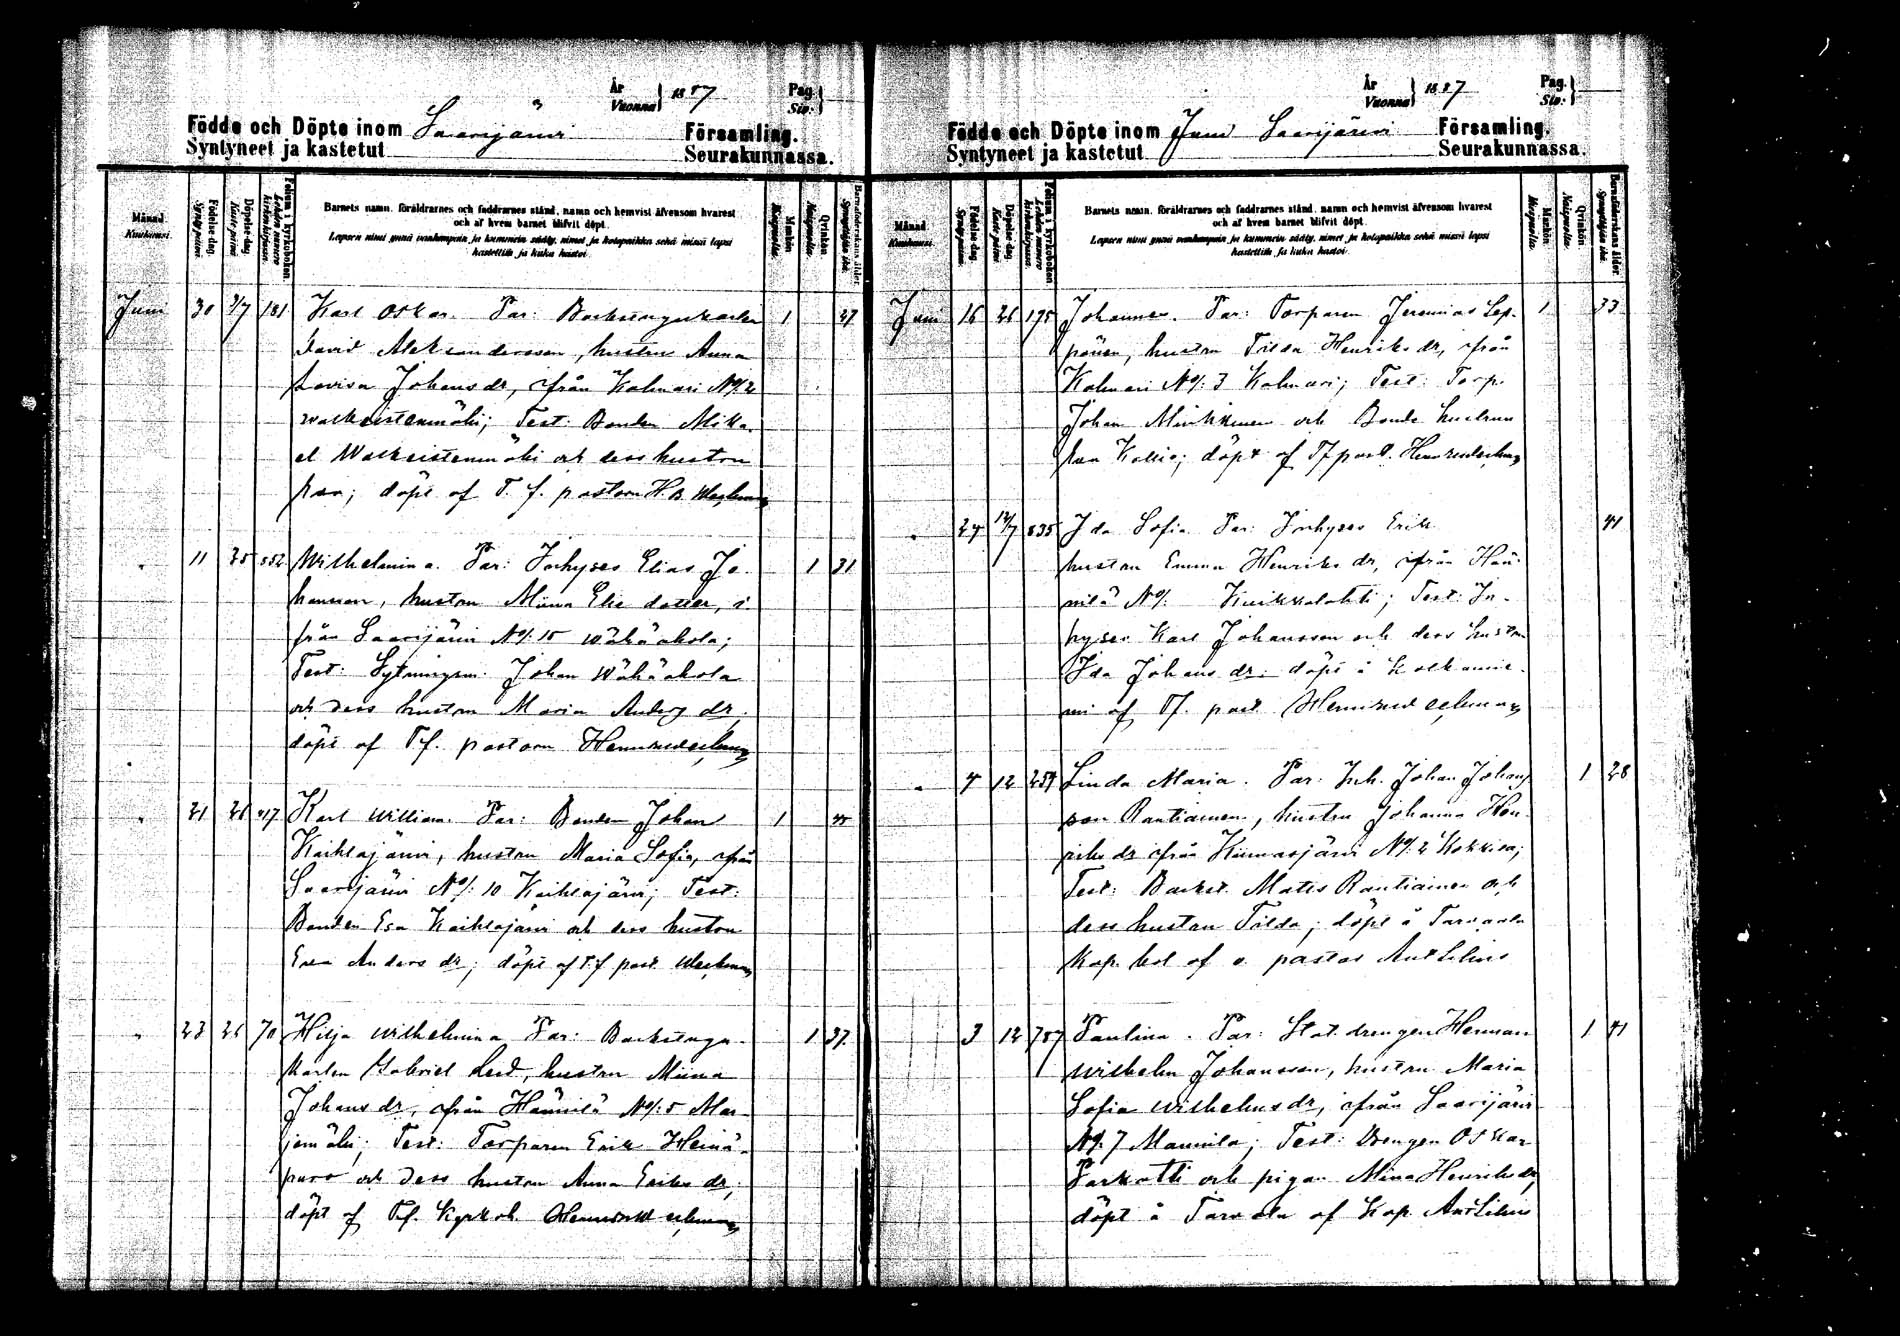 År
Vuonna} 1887
Pag.
Siv.}
Födde och Döpte inom Saarijärvi Församling.
Syntyneet ja kastetut Seurakunnassa.
Månad.
Kuukausi.
Födelse-dag.
Syntymä-päivä.
Döpelse-dag.
Kaste-päivä
Folium i kyrkoboken.
Lehden numero kirkonkirjassa.
Barnets namn, föräldrarnes och faddrarnes stånd, namn och hemvist äfvensom hvarest
och af hvem barnet blifvit döpt.
Lapsen nimi ynnä vanhempain ja kummein sääty, nimet ja kotopaikka sekä missä lapsi
kastettiin ja kuka kastoi.
Mankön.
Miespuolta.
Qvinkön.
Naispuolta.
Barnaföderskans ålder.
Synnyttäjän ikä.
Juni 30 3/7 181 Karl Oskar. Par: Backstugukarlen 1 27
David Aleksandersson, hustru Anna
Lovisa Johansdr, ifrån Kolmari No/: 2
walkeistenmäki; Test: Bonden Mika
el Walkeistenmäki och dess hustru
; döpt af T. f. pastorn H. B.
" 11 25 552 Wilhelmina. Par: Inhyses Elias Jo- 1 31
hansson, hustru Miina Elie dotter, i
från Saarijärvi No/: 15 wähäahola;
Test: Sytningsm. Johan Wähäahola
och dess hustru Maria Anders dr,
döpt af Tf. pastorn
" 21 26 417 Karl William. Par: Bonden Johan 1 45
Kaihlajärvi, hustru Maria Sofia, ifrån
Saarijärvi No/: 10 Kaihlajärvi; Test:
Bonden Esa Kaihlajärvi och dess hustru
Eva Anders dr; döpt af T.f past.
" 23 26 70 Hilja Wilhelmina Par: Backstugu- 1 37
karlen Gabriel Lind, hustru Miina
Johans dr, ifrån Hännilä No/: 5 Mar-
jomäki; Test: Torparen Erik Heinä-
puro och dess hustru Anna Eriks dr,
döpt af Tf. Kyrkoh.
År
Vuonna} 1887
Pag.
Siv.}
Födde och Döpte inom Juni Saarijärvi Församling.
Syntyneet ja kastetut Seurakunnassa.
Månad
Kuukausi.
Födelse-dag.
Syntymä-päivä.
Döpelse-dag.
Kaste-päivä
Folium i kyrkoboken
Lehden numero kirkonkirjassa.
Barnets namn, föräldrarnes och faddrarnes stånd, namn och hemvist äfvensom hvarest
och af hvem barnet blifvit döpt.
Lapsen nimi ynnä vanhempain ja kummein sääty, nimet ja kotopaikka sekä missä lapsi
kastettiin ja kuka kastoi.
Mankön.
Miespuolta.
Qvinkön.
Naispuolta.
Barnaföderskans ålder.
Synnyttäjän ikä.
Juni 16 26 175 Johannes. Par: Torparen Jeremias Lep- 1 33
pänen, hustru Tilda Henriks dr, ifrån
Kolmari No/: 3 Kolmari; Test: Torp.
Johan Minkkinen och Bonde hustrun
; döpt af Tf past.
" 24 12/7 535 Ida Sofia Par: Inhyses Erik 41
hustru Emma Henriks dr, ifrån Hän-
nilä No/: Kuikkalahti; Test: In-
hyses Karl Johansson och dess hustru
Ida Johans dr. döpt å Kolkannie-
mi af Tf. past.
" 4 12 259 Linda Maria. Par: Inh. Johan Johans 1 28
son Rantiainen, hustru Johanna Hen-
riks dr ifrån Kiimasjärvi No/: 2 Kokkisa;
Test: Backst. Mats Rantiainen och
dess hustru Tilda; döpt å Tarvaala
Kap. bol af v. pastor
3 12 787 Paulina. Par: Stat. drengen Herman 1 41
Wilhelm Johansson, hustru Maria
Sofia Wilhelmsdr, ifrån Saarijärvi
No/: 7 Mannila; Test: Drengen Oskar
Parkatti och pigan Miina Henriksdr,
döpt å Tarvaala af Kap.